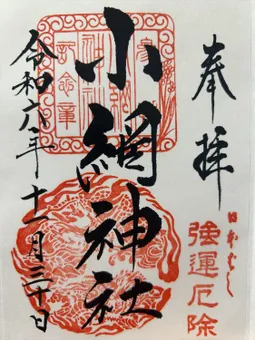 奉拝
強運厄除
小網神社
令和六年十一月三十日